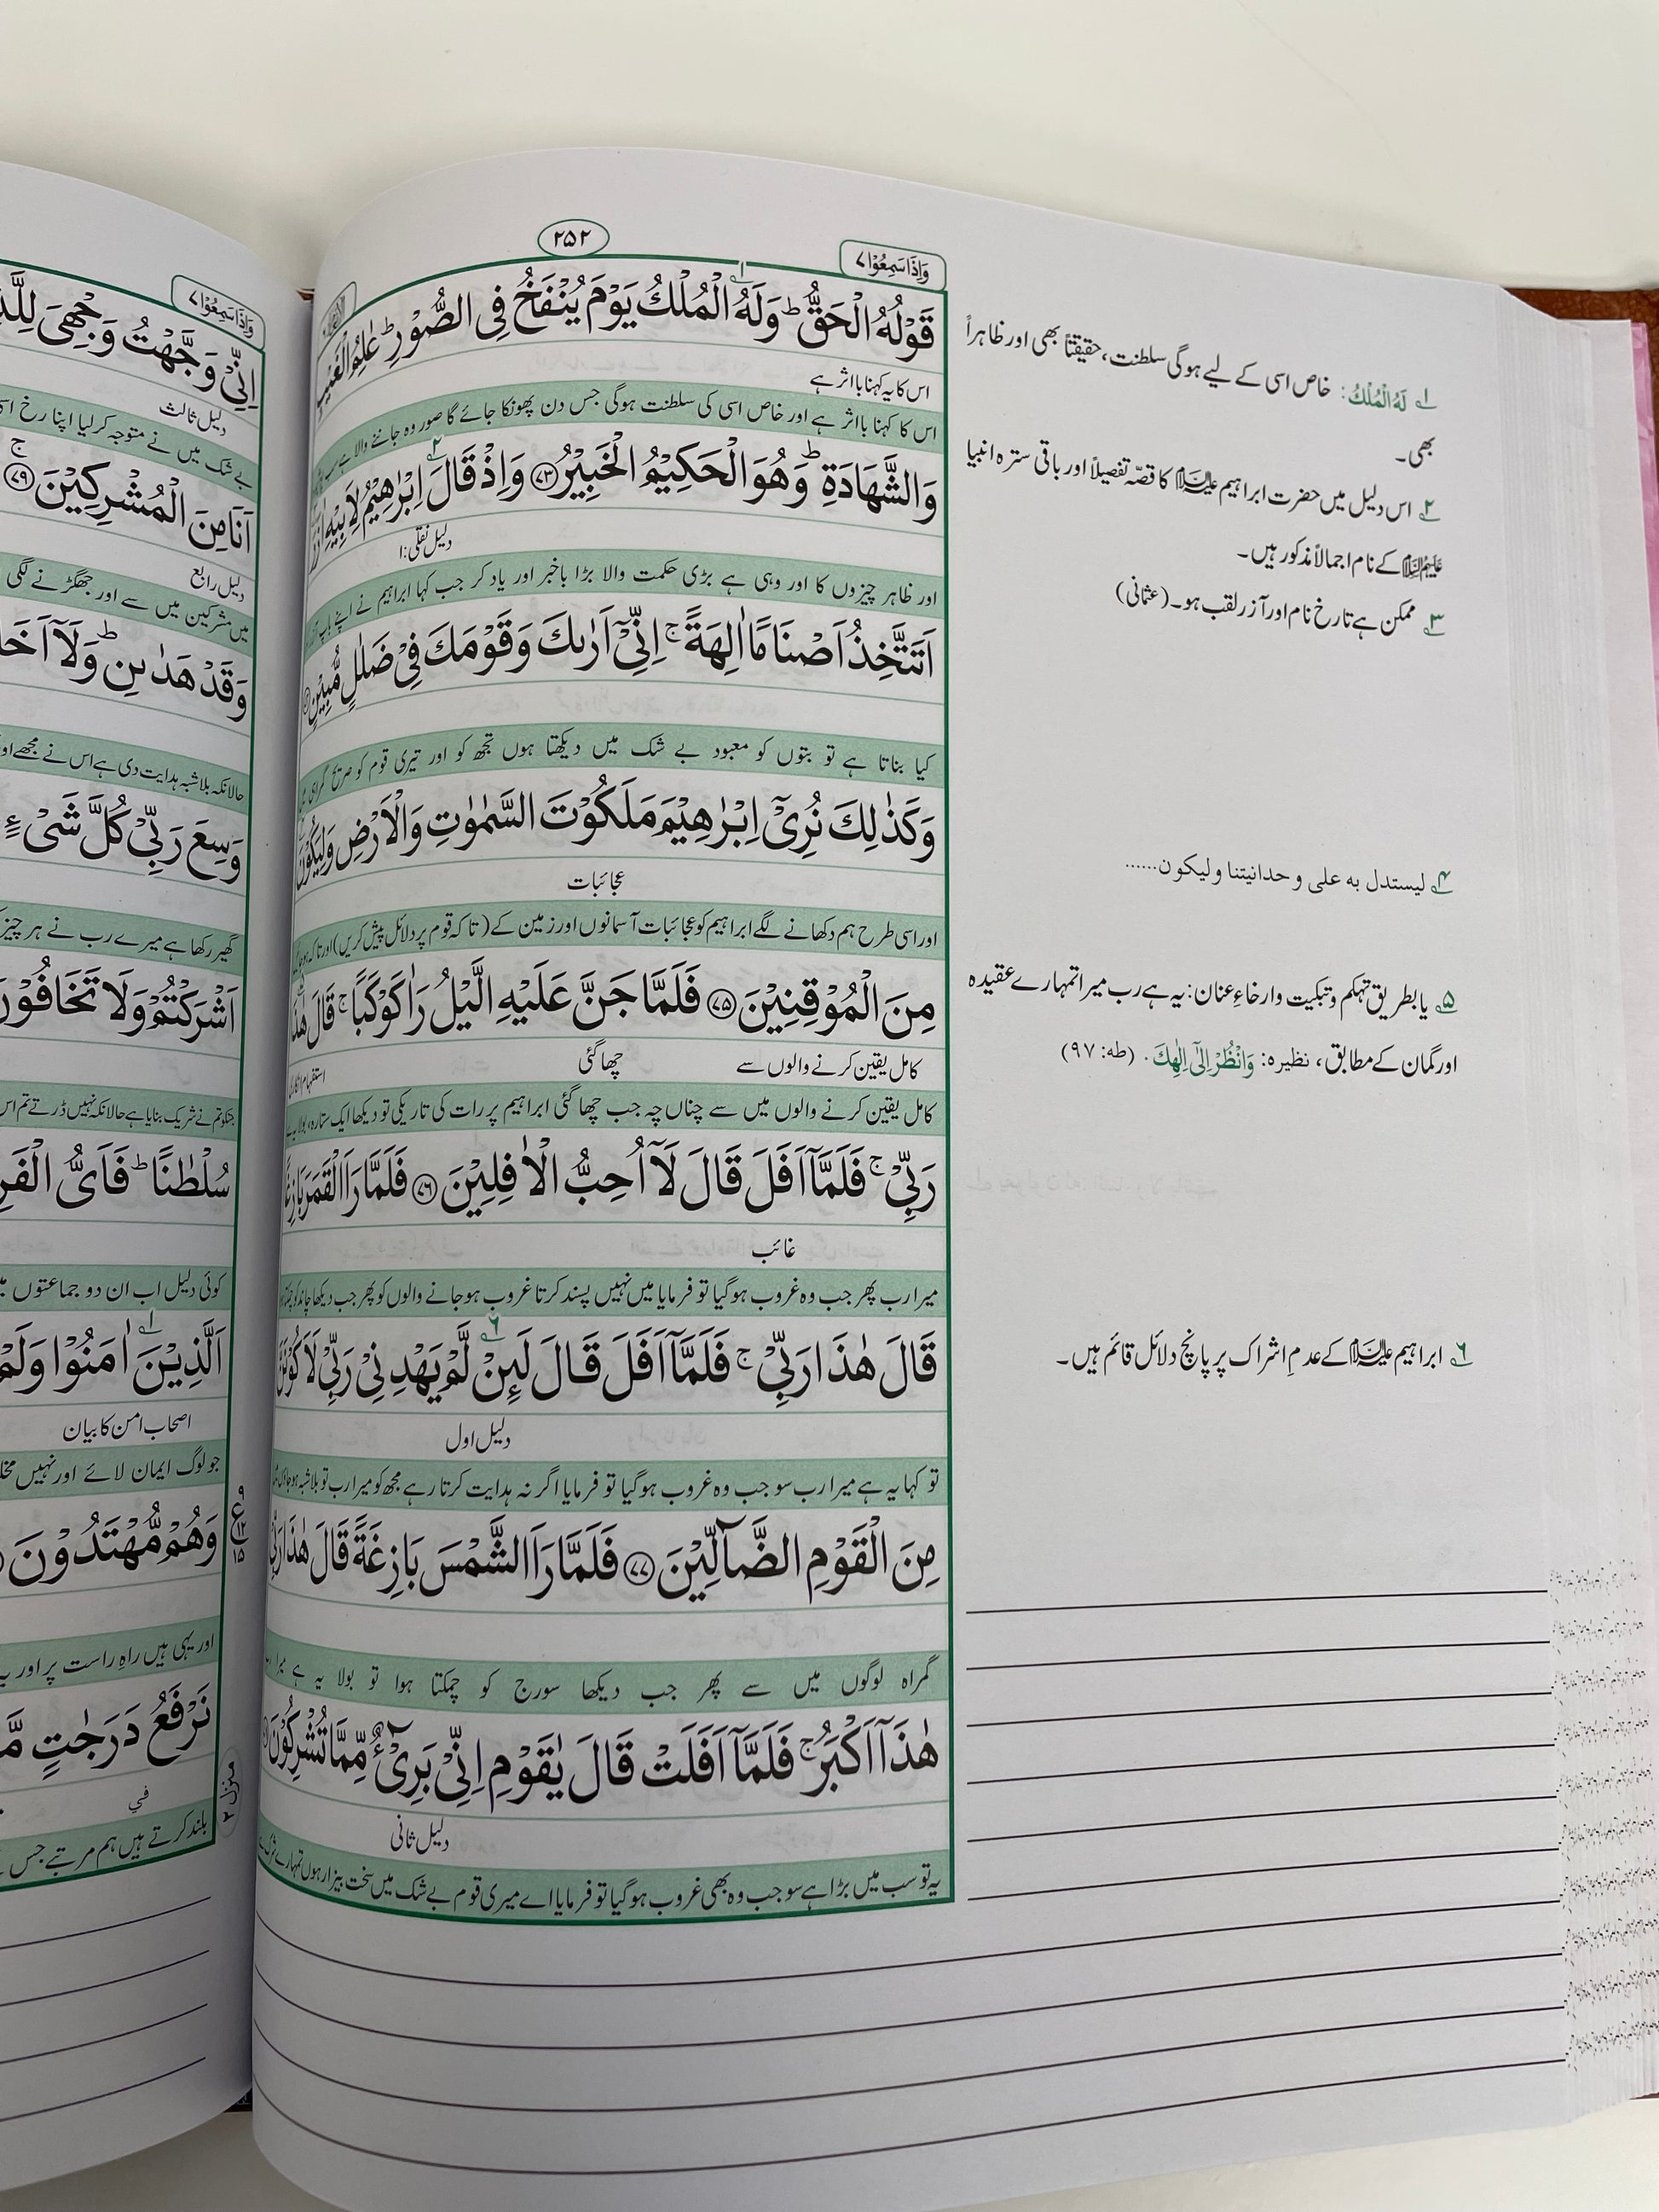 ۲۵۲
وَاِذَا سَمِعُوْا ۷
قَوْلُهُ الْحَقُّ ؕ وَلَهُ الْمُلْكُ يَوْمَ يُنْفَخُ فِي الصُّوْرِ ؕ عٰلِمُ الْغَيْبِ
اس کا یہ کہنا با اثر ہے
اس کا کہنا با اثر ہے اور خاص اسی کی سلطنت ہوگی جس دن پھونکا جائے گا صور وہ جاننے والا ہے
وَالشَّهَادَةِ ؕ وَهُوَ الْحَكِيْمُ الْخَبِيْرُ ۝۷۳ وَاِذْ قَالَ اِبْرٰهِيْمُ لِاَبِيْهِ اٰزَرَ
دلیل نقلی: ۱
اور ظاہر چیزوں کا اور وہی ہے بڑی حکمت والا بڑا باخبر اور یاد کر جب کہا ابراہیم نے اپنے باپ
اَتَتَّخِذُ اَصْنَامًا اٰلِهَةً ۚ اِنِّيْۤ اَرٰىكَ وَقَوْمَكَ فِيْ ضَلٰلٍ مُّبِيْنٍ
کیا بناتا ہے تو بتوں کو معبود بے شک میں دیکھتا ہوں تجھ کو اور تیری قوم کو صریح گمراہی
وَكَذٰلِكَ نُرِيْۤ اِبْرٰهِيْمَ مَلَكُوْتَ السَّمٰوٰتِ وَالْاَرْضِ وَلِيَكُوْنَ
عجائبات
اور اسی طرح ہم دکھانے لگے ابراہیم کو عجائبات آسمانوں اور زمین کے (تاکہ قوم پر دلائل پیش کریں) اور تاکہ
مِنَ الْمُوْقِنِيْنَ ۝۷۵ فَلَمَّا جَنَّ عَلَيْهِ الَّيْلُ رَاٰ كَوْكَبًا ۚ قَالَ هٰذَا
کامل یقین کرنے والوں سے چھا گئی استفہام انکاری
کامل یقین کرنے والوں میں سے چناں چہ جب چھا گئی ابراہیم پر رات کی تاریکی تو دیکھا ایک ستارہ، بولا
رَبِّيْ ۚ فَلَمَّاۤ اَفَلَ قَالَ لَاۤ اُحِبُّ الْاٰفِلِيْنَ ۝۷۶ فَلَمَّا رَاَ الْقَمَرَ بَازِغًا
غائب
میرا رب پھر جب وہ غروب ہوگیا تو فرمایا میں نہیں پسند کرتا غروب ہوجانے والوں کو پھر جب دیکھا چاند کو
قَالَ هٰذَا رَبِّيْ ۚ فَلَمَّاۤ اَفَلَ قَالَ لَئِنْ لَّمْ يَهْدِنِيْ رَبِّيْ لَاَكُوْنَنَّ
دلیل اول
تو کہا یہ ہے میرا رب سو جب وہ غروب ہوگیا تو فرمایا اگر نہ ہدایت کرتا رہے مجھ کو میرا رب تو بلاشبہ
مِنَ الْقَوْمِ الضَّآلِّيْنَ ۝۷۷ فَلَمَّا رَاَ الشَّمْسَ بَازِغَةً قَالَ هٰذَا رَبِّيْ
گمراہ لوگوں میں سے پھر جب دیکھا سورج کو چمکتا ہوا تو بولا یہ ہے میرا
هٰذَاۤ اَكْبَرُ ۚ فَلَمَّاۤ اَفَلَتْ قَالَ يٰقَوْمِ اِنِّيْ بَرِيْٓءٌ مِّمَّا تُشْرِكُوْنَ
دلیل ثانی
یہ تو سب میں بڑا ہے سو جب وہ بھی غروب ہوگیا تو فرمایا اے میری قوم بے شک میں سخت بیزار ہوں تمہارے
۱ لَهُ الْمُلْكُ: خاص اسی کے لیے ہوگی سلطنت، حقیقتاً بھی اور ظاہراً
بھی۔
۲ اس دلیل میں حضرت ابراہیم علیہ السلام کا قصّہ تفصیلاً اور باقی سترہ انبیا
علیہم السلام کے نام اجمالاً مذکور ہیں۔
۳ ممکن ہے تارخ نام اور آزر لقب ہو۔ (عثمانی)
۴ ليستدل به على وحدانيتنا وليكون......
۵ یا بطریق تہکم و تبکیت وارخاءِ عنان: یہ ہے رب میرا تمہارے عقیدہ
اور گمان کے مطابق، نظیرہ: وَانْظُرْ اِلٰۤى اِلٰهِكَ. (طه: ۹۷)
۶ ابراہیم علیہ السلام کے عدمِ اشراک پر پانچ دلائل قائم ہیں۔
وَاِذَا سَمِعُوْا ۷
اِنِّيْ وَجَّهْتُ وَجْهِيَ
دلیل ثالث
بے شک میں نے متوجہ کرلیا اپنا رخ
اَنَا مِنَ الْمُشْرِكِيْنَ ۝۷۹
دلیل رابع
میں مشرکین میں سے اور جھگڑنے لگی
وَقَدْ هَدٰىنِ ؕ وَلَاۤ اَخَا
حالانکہ بلاشبہ ہدایت دی ہے اس نے مجھے اور
وَسِعَ رَبِّيْ كُلَّ شَيْءٍ
گھیر رکھا ہے میرے رب نے ہر چیز
اَشْرَكْتُمْ وَلَا تَخَافُوْنَ
جنکو تم نے شریک بنایا ہے حالانکہ نہیں ڈرتے تم اس
سُلْطٰنًا ؕ فَاَيُّ الْفَرِ
کوئی دلیل اب ان دو جماعتوں
اَلَّذِيْنَ اٰمَنُوْا وَلَمْ
اصحاب امن کا بیان
جو لوگ ایمان لائے اور نہیں
وَهُمْ مُّهْتَدُوْنَ
۹
ع
۱۲
۱۵
اور یہی ہیں راہِ راست پر اور
نَرْفَعُ دَرَجٰتٍ
في
منزل ۲
بلند کرتے ہیں ہم مرتبے جس